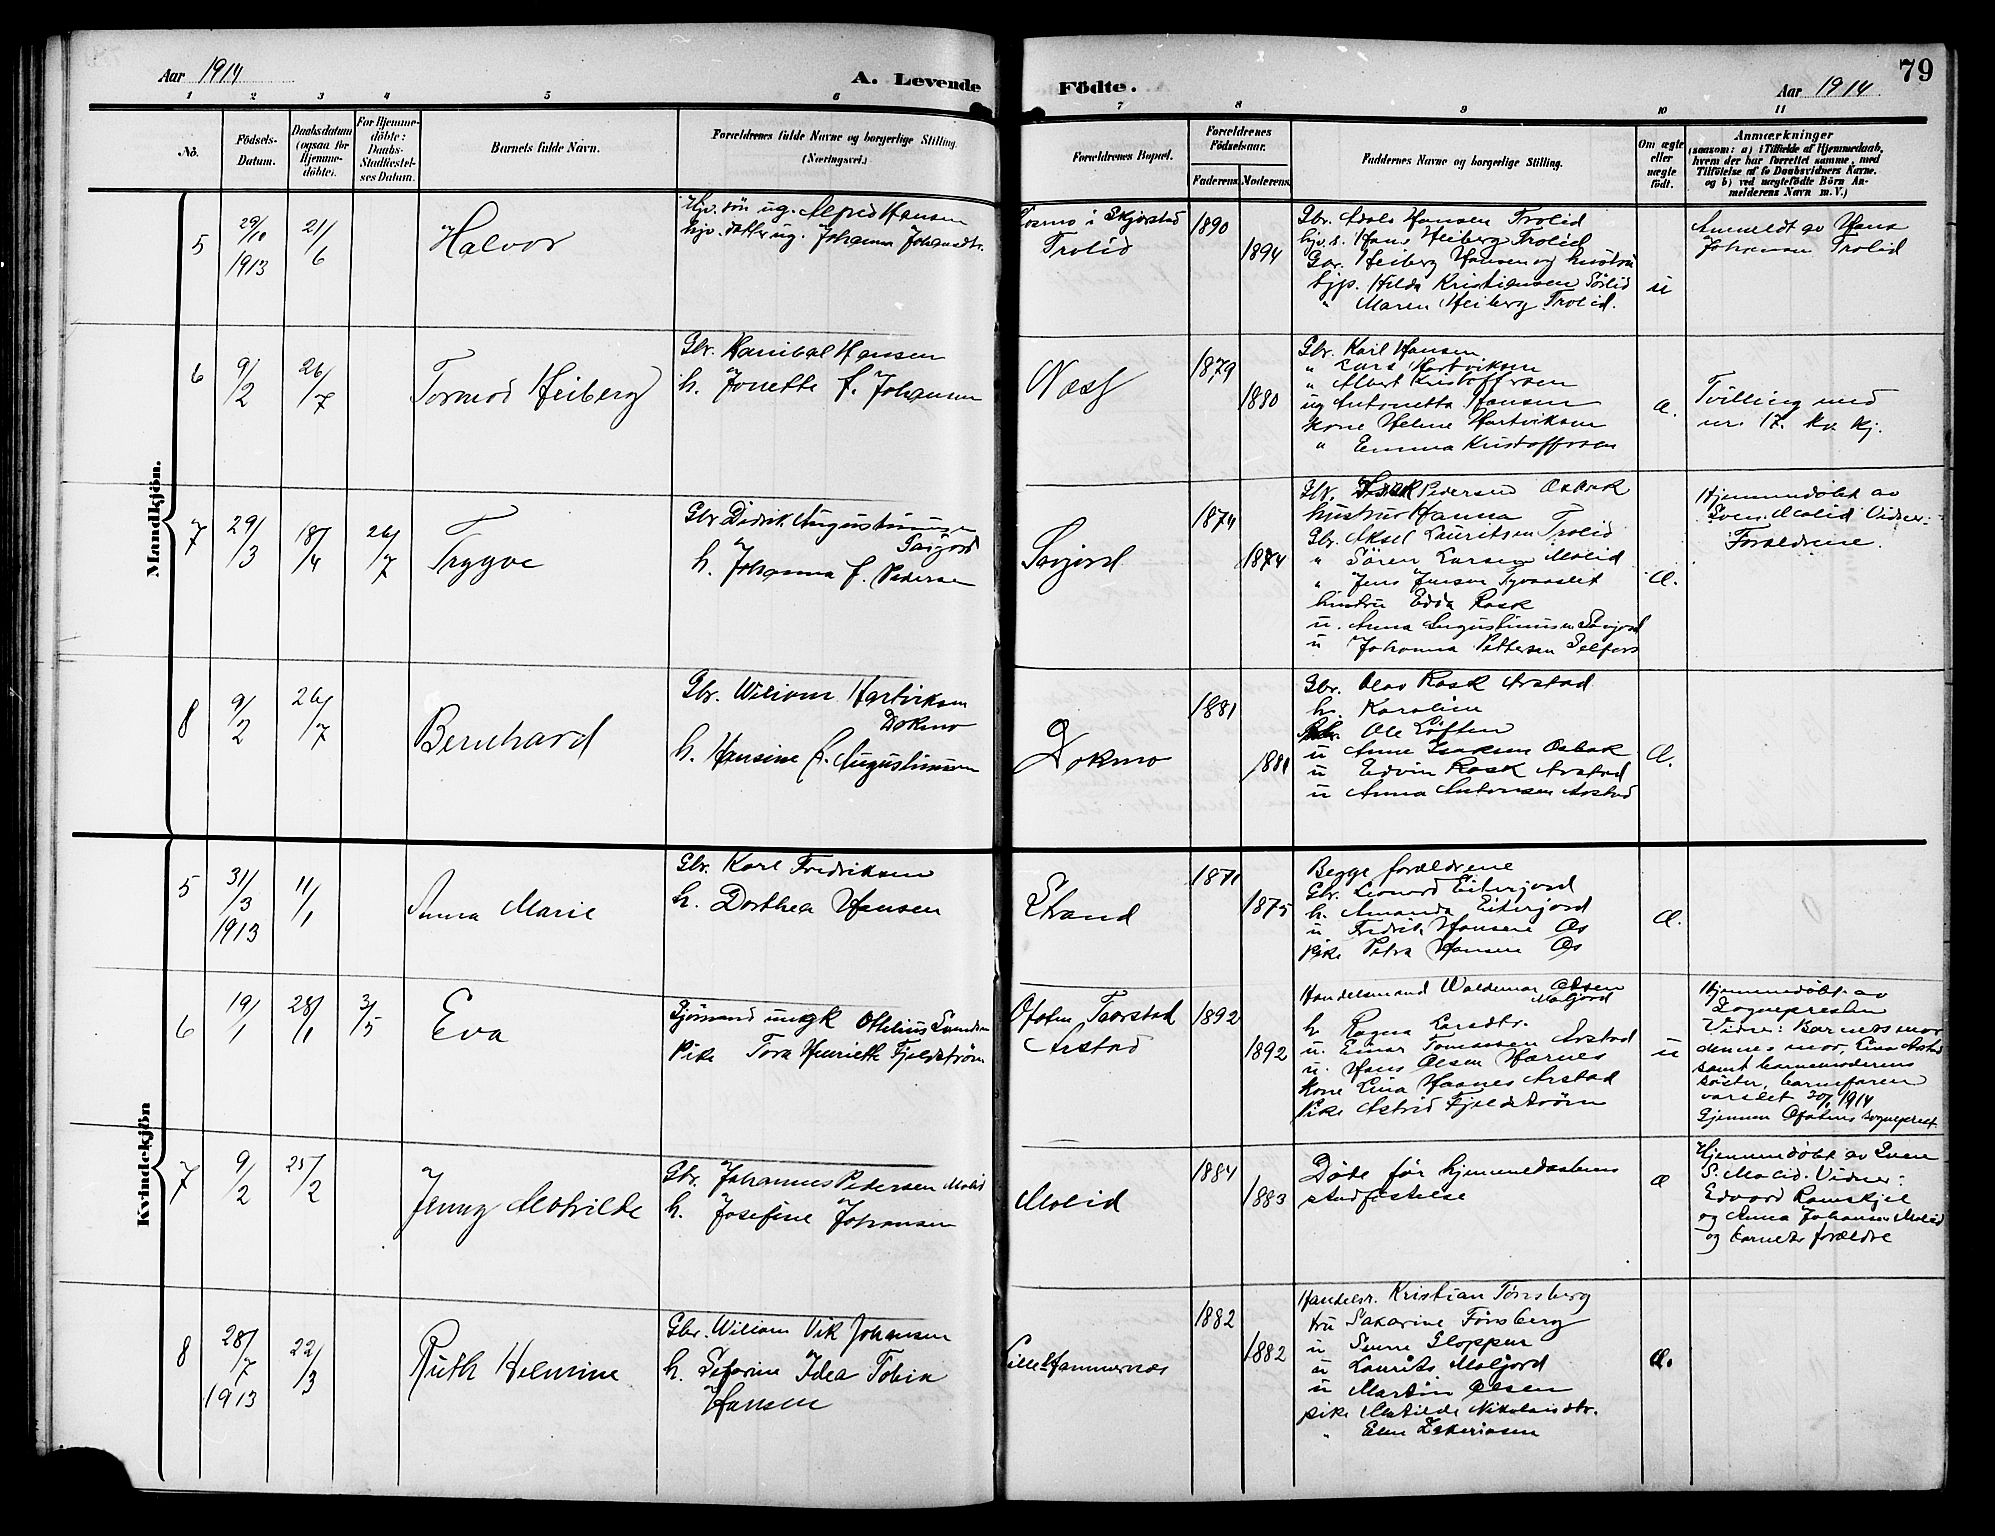 Aar 1914
A. Levende
Födte.
Aar 1914
79
1 2 3 4 5 6 7 8 9 10 11
No.
Födsels-Datum.
Daabsdatum (ogsaa for Hjemme-döbte).
For Hjemme-döbte: Daabs-Stadfæstel-ses Datum.
Barnets fulde Navn.
Forældrenes fulde Navne og borgerlige Stilling. (Næringsvei.)
Forældrenes Bopæl.
Forældrenes Födselsaar.
Faderens. Moderens.
Faddernes Navne og borgerlige Stilling.
Om ægte eller uægte födt.
Anmærkninger
(saasom: a) i Tilfælde af Hjemmedaab, hvem der har forrettet samme, med Tilföielse af to Daabsvidners Navne. og b) ved uægtefödte Börn An-melderens Navn m. V.)
Mandkjön.
5
29/10 1913
21/6
Halvor
Gbr. søn ug. Alfred Hansen
datter ug. Johanna Johansdtr.
i Skjerstad
Trolid
1890
1894
Gbr. Adolf Hansen Trolid
Hans Heiberg Trolid
Gbr. Heiberg Hansen og hustru
Hilda Kristiansen
" Maren Heiberg Trolid.
u
Anmeldt av Hans
Johansen Trolid
6
9/2
26/7
Tormod Heiberg
Gbr. Hanibal Hansen
h. Jonette f. Johansen
Næss
1879
1880
Gbr. Karl Hansen
" Lars Hartviksen
" Albert Kristoffersen
ug Antonetta Hansen
Kone Helene Hartviksen
" Emma Kristoffersen
æ.
Tvilling med
nr. 17. kv. kj.
7
29/3
18/4
26/7
Trygve
Gbr Didrik Augustinussen
h. Johanna f. Pedersen
1874
1874
Gbr. Isak Pedersen Osbak
hustru Hanna
Gbr. Aksel Lauritsen Trolid
" Sören Larsen Molid
" Jens Jensen
hustru Edda Rask
u. Anna Augustinussen
u Johanna Pettersen Selfors
æ.
Hjemmedøbt av
Sven Molid Vidner:
Forældrene.
8
9/2
26/7
Bernhard
Gbr. Wiliam Hartviksen
Dokmo
h. Hansine f. Augustinussen
Dokmo
1881
1881
Gbr. Olav Rask Arstad
h. Karoline
Ole Løften
u Anne Isaksen Osbak
u Edvin Rask Arstad
u Anna Antonsen Arstad
æ.
Kvindekjön
5
31/3 1913
11/1
Anna Marie
Gbr. Karl Fredriksen
h. Dorthea Hansen
Strand
1871
1875
Begge forældrene
Gbr. Leonard Eiterjord
h. Amanda Eiterjord
u Fredrik Hansen Os
Pike Petra Hansen Os
æ.
6
19/1
28/1
3/5
Eva
Sjömand ungk Othelius
Pike Tora Henriette Fjeldstrøm
Ofoten
Arstad
1892
1892
Handelsmand Waldemar Olsen
Moljord
h Ragna Larsdtr.
u. Einar Tomassen Arstad
u. Hans Olsen
Kone Lina Haanes Arstad
Pike Astrid Fjeldstrøm
u
Hjemmedøbt av
Sognepresten
Vidner: Barnets mor
dennes mor, Lina Arstad
samt barnemoderens
søster, barnefaren
varslet 20/1 1914
Gjennem Ofotens sogneprest.
7
9/2
25/2
Jenny Matilde
Gbr. Johannes Pedersen Molid
h. Josefine Johansen
Molid
1884
1883
Døde før hjemmedaabens
stadfæstelse
æ
Hjemmedøbt av Sven
S. Molid. Vidner:
Edvard Ramskjel
og Anna Johansen Molid
og barnets forældre
8
28/7 1913
22/3
Ruth Helmine
Gbr. Wiliam Vik Johansen
h. Idea Tobia
Hansen
Lille Hammernæs
1882
1882
Handelsr. Kristian Tønsberg
fru Sakarine Tønsberg
u Gloppen
u Laurits Moljord
u Martin Olsen
pike Matilde Nikolaisdtr.
" Elen Zakariasen
æ.